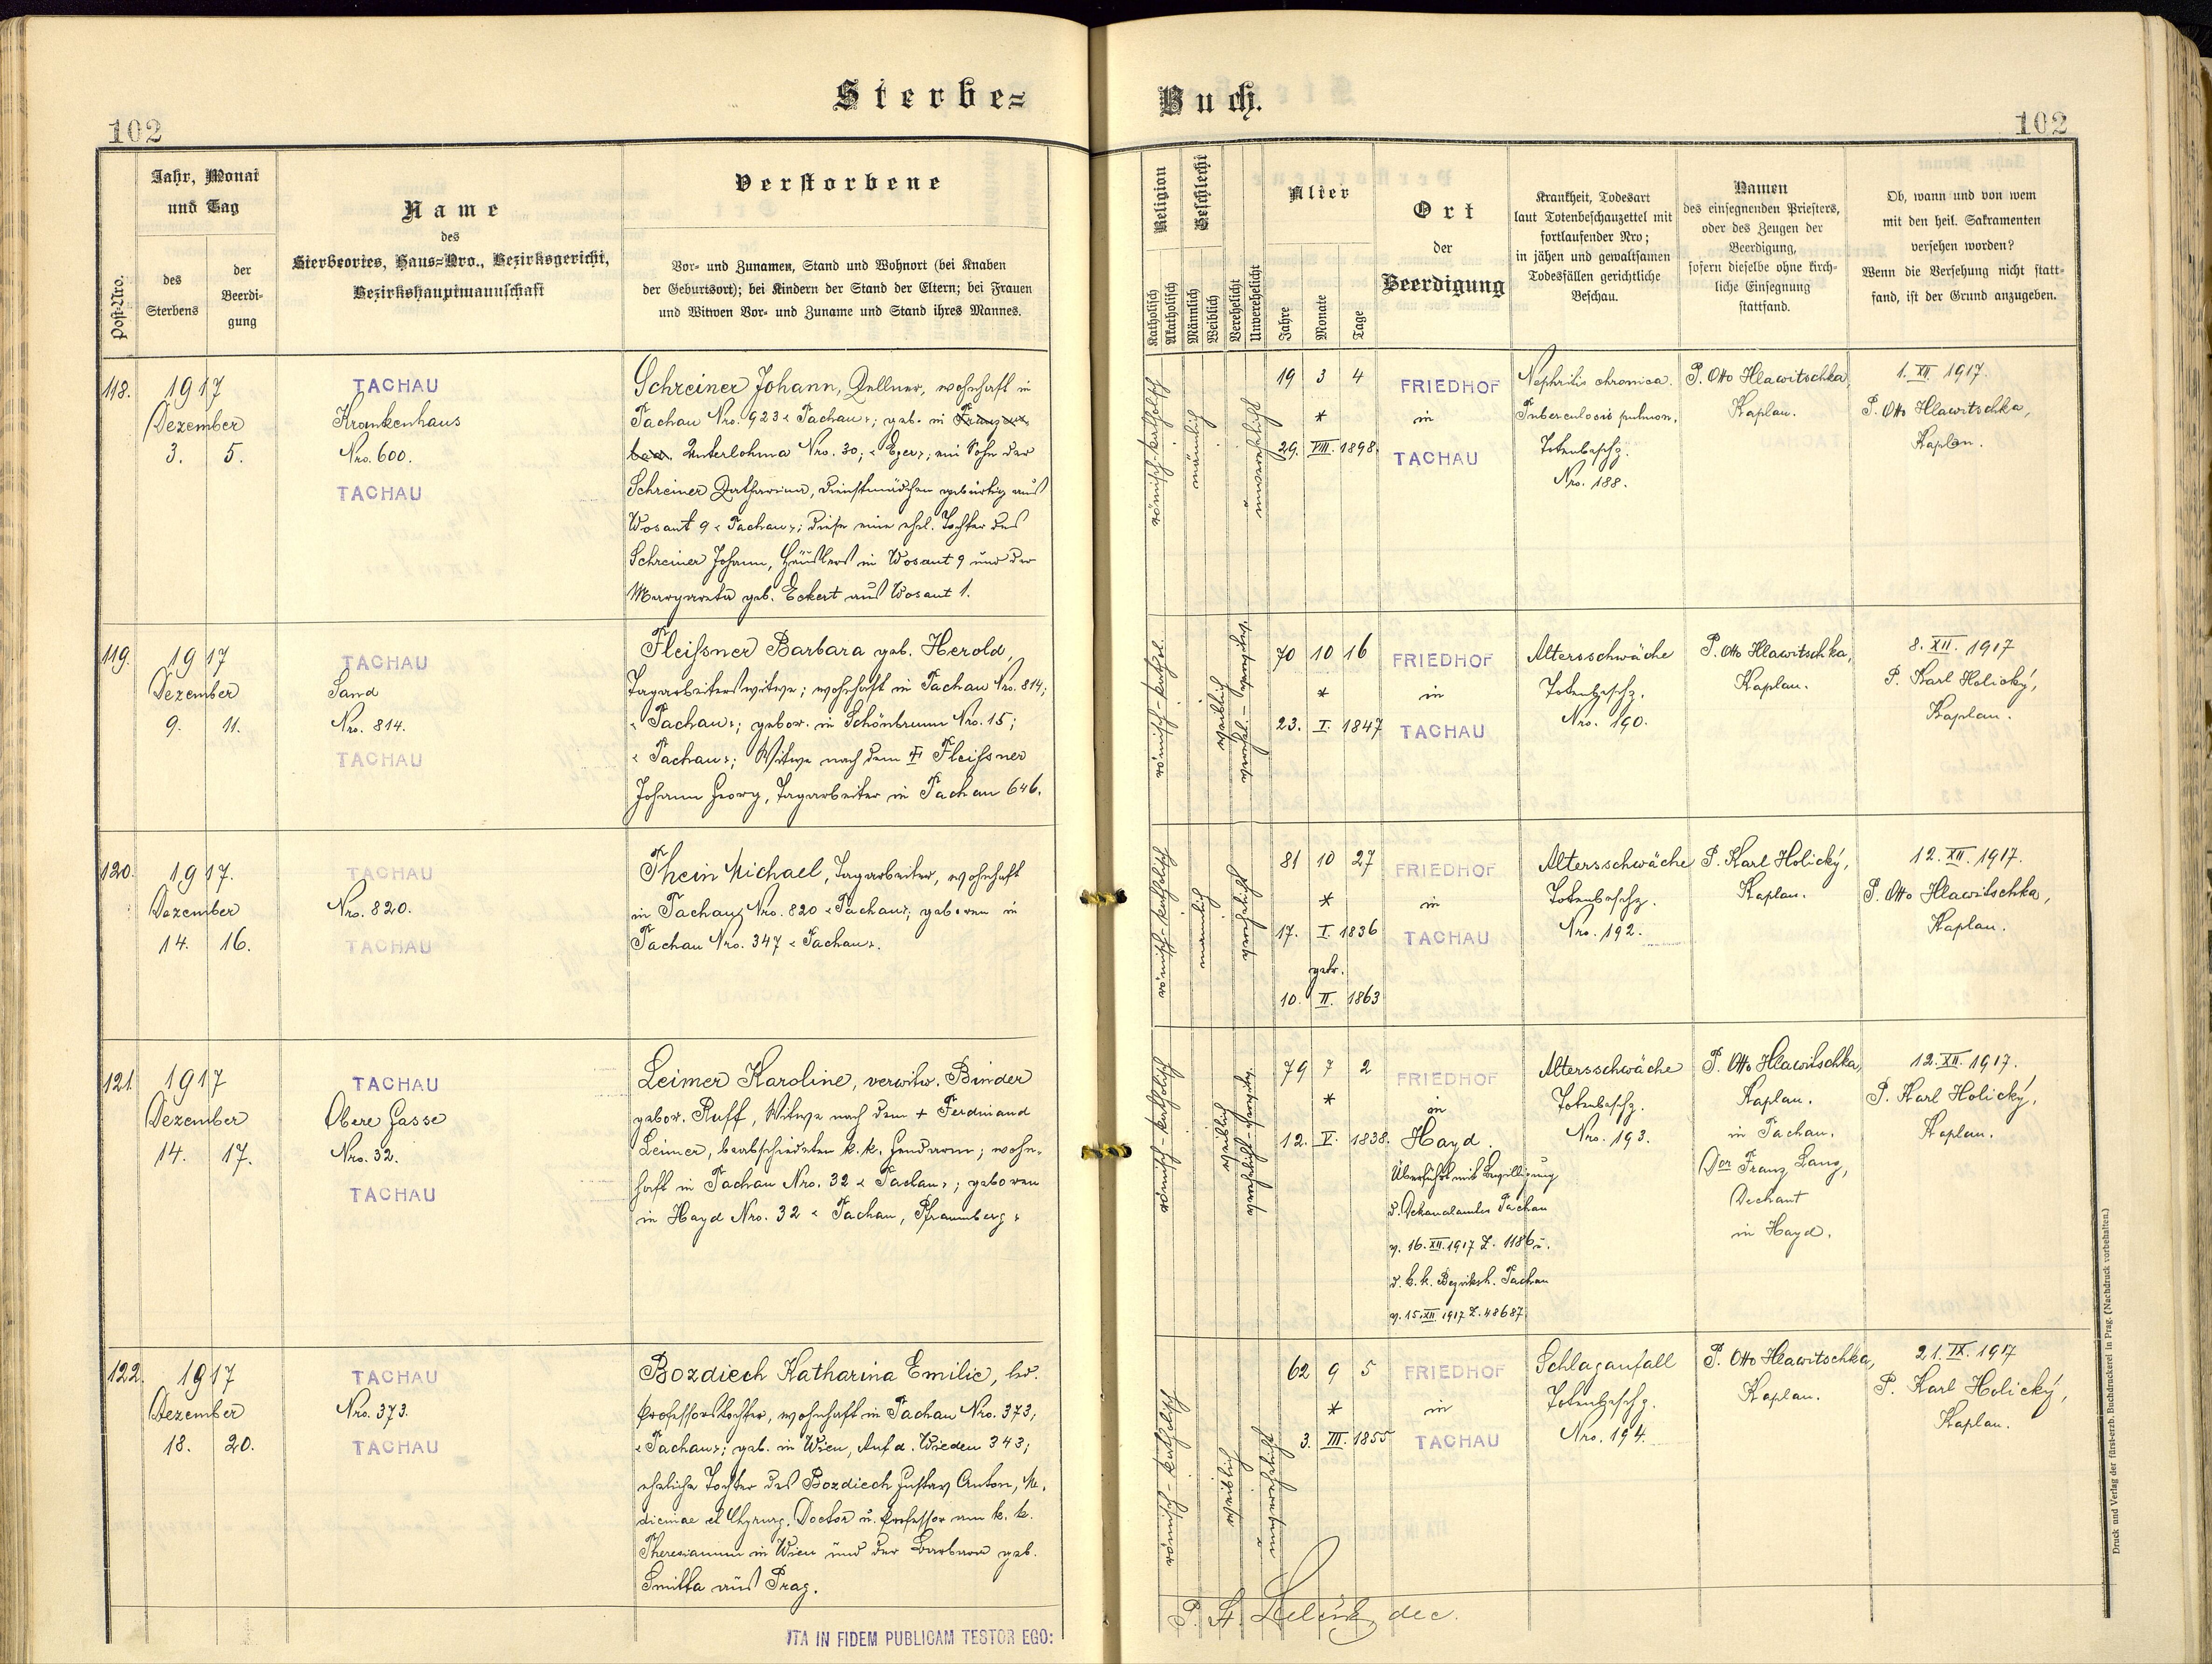 Sterbe=
Buch.
102
102
Post-Nro.
Jahr, Monat und Tag
des Sterbens
der Beerdi- gung
Name
des
Sterbeortes, Haus=Nro., Bezirksgericht,
Bezirkshauptmannschaft
Verstorbene
Vor- und Zunamen, Stand und Wohnort (bei Knaben
der Geburtsort); bei Kindern der Stand der Eltern; bei Frauen
und Witwen Vor- und Zuname und Stand ihres Mannes.
Religion
Katholisch
Akatholisch
Geschlecht
Männlich
Weiblich
Verehelicht
Unverehelicht
Alter
Jahre
Monate
Tage
Ort
der
Beerdigung
Krankheit, Todesart
laut Totenbeschauzettel mit
fortlaufender Nro;
in jähen und gewaltsamen
Todesfällen gerichtliche
Beschau.
Namen
des einsegnenden Priesters,
oder des Zeugen der
Beerdigung,
sofern dieselbe ohne kirch-
liche Einsegnung
stattfand.
Ob, wann und von wem
mit den heil. Sakramenten
versehen worden?
Wenn die Versehung nicht statt-
fand, ist der Grund anzugeben.
118.
1917
Dezember
3. 5.
TACHAU
Krankenhaus
Nro. 600.
TACHAU
Schreiner Johann, Kellner, wohnhaft in
Tachau Nro. 923 « Tachau»; geb. in
Unterlohma Nro. 30; « Eger»; ein Sohn der
Schreiner Katharina, Dienstmädchen gebürtig aus
Wosant 9 « Tachau»; diese eine ehel. Tochter des
Schreiner Johann, Häuslers in Wosant 9 und der
Margareta geb. Eckert aus Wosant 1.
römisch-katholisch
männlich
unverehelicht
19 3 4
*
29. VIII. 1898.
FRIEDHOF
in
TACHAU
Nephritis chronica.
Tuberculosis pulmon.
Totenbeschz.
Nro. 188.
P. Otto Hlawitschka,
Kaplan.
1. XII. 1917.
P. Otto Hlawitschka,
Kaplan.
119.
1917
Dezember
9. 11.
TACHAU
Sand
Nro. 814.
TACHAU
Fleißner Barbara geb. Herold,
Tagarbeiterswitwe; wohnhaft in Tachau Nro. 814;
« Tachau»; gebor. in Schönbrunn Nro. 15;
« Tachau»; Witwe nach dem † Fleißner
Johann Georg, Tagarbeiter in Tachau 646.
römisch-kathol.
weiblich
verehel.-verwitw.
70 10 16
*
23. I. 1847
FRIEDHOF
in
TACHAU
Altersschwäche
Totenbeschz.
Nro. 190.
P. Otto Hlawitschka,
Kaplan.
8. XII. 1917
P. Karl Holický,
Kaplan.
120.
1917.
Dezember
14. 16.
TACHAU
Nro. 820.
TACHAU
Thein Michael, Tagarbeiter, wohnhaft
in Tachau Nro. 820 « Tachau»; geboren in
Tachau Nro. 347 « Tachau».
römisch-katholisch
männlich
verehelicht
81 10 27
*
17. I. 1836
getr.
10. II. 1863
FRIEDHOF
in
TACHAU
Altersschwäche
Totenbeschz.
Nro. 192.
P. Karl Holický,
Kaplan.
12. XII. 1917.
P. Otto Hlawitschka,
Kaplan.
121
1917
Dezember
14. 17.
TACHAU
Obere Gasse
Nro. 32.
TACHAU
Leimer Karoline, verwitw. Binder
gebor. Ruff, Witwe nach dem + Ferdinand
Leimer, beabschiedeten k. k. Gendarm; wohn-
haft in Tachau Nro. 32 « Tachau»; geboren
in Hayd Nro. 32 « Tachau, Pfraumberg »
römisch-katholisch
weiblich
verehelicht-verwitw.
79 7 2
*
12. V. 1838.
FRIEDHOF
in
Hayd.
Überführt mit Bewilligung
d. Dekanalamtes Tachau
v. 16. XII. 1917 Z. 1186 u.
d. k. k. Bezirksh. Tachau
v. 15. XII 1917 Z. 48687
Altersschwäche
Totenbeschz.
Nro. 193.
P. Otto Hlawitschka,
Kaplan.
in Tachau.
Franz Lang,
Dechant
in Hayd.
12. XII. 1917.
P. Karl Holický,
Kaplan.
122.
1917
Dezember
18. 20.
TACHAU
Nro. 373.
TACHAU
Bozdiech Katharina Emilie, led.
Professorstochter, wohnhaft in Tachau Nro. 373;
« Tachau»; geb. in Wien, Auf d. Wieden 343;
eheliche Tochter des Bozdiech Gustav Anton, Me-
dicinae et Chyrurg. Doctor u. Professor am k. k.
Theresianum in Wien und der Barbara geb.
Smitta aus Prag.
römisch-katholisch
weiblich
unverehelicht
62 9 5
*
3. III. 1855
FRIEDHOF
in
TACHAU
Schlaganfall
Totenbeschz.
Nro. 194.
P. Otto Hlawitschka,
Kaplan.
21. IX. 1917
P. Karl Holický,
Kaplan.
ITA IN FIDEM PUBLICAM TESTOR EGO:
dec.
Druck und Verlag der fürst-erzb. Buchdruckerei in Prag. (Nachdruck vorbehalten.)